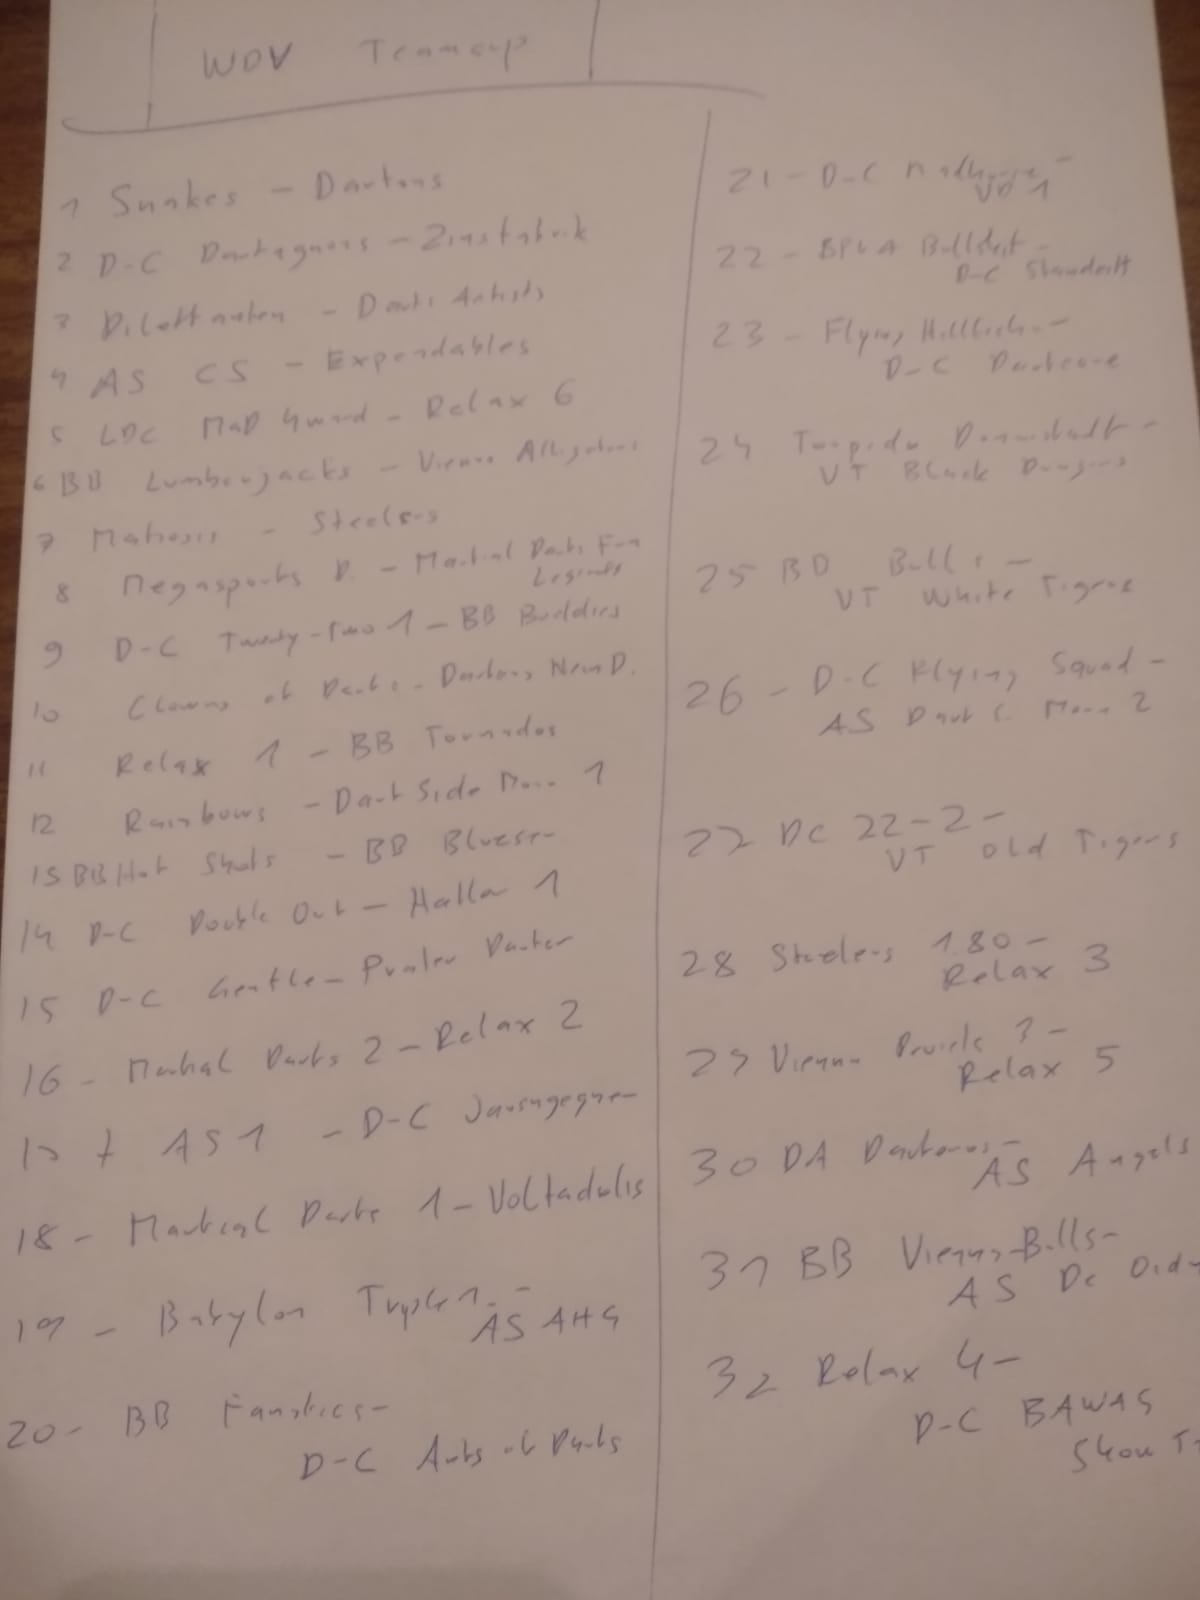 WDV Teamcup
1 Snakes - Dartons
2 D-C Dartagnons - Zinsfabrik
3 Dilettanten - Darts Artists
4 AS CS - Expendables
5 LDC MaD 4ward - Relax 6
6 BB Lumberjacks - Vienna Alligators
7 - Steelers
8 Megasports D. - Martial Darts Fun
Legends
9 D-C Twenty-Two 1 - BB Buddies
10 Clowns of Darts - Dartons New D.
11 Relax 1 - BB Tornados
12 Rainbows - Dart Side Moon 1
13 BB Hot Shots - BB
14 D-C Double Out - Halla 1
15 D-C Gentle - Prater Darter
16 - Martial Darts 2 - Relax 2
17 AS 1 - D-C Jausngegner
18 - Martial Darts 1 - Voltadulis
19 - Babylon Triple 1. -
AS AHS
20 - BB Fanatics -
D-C Arts of Darts
21 - D-C -
VD 1
22 - Bullshit -
D-C Standart
23 - Flying -
D-C Dartcore
24 Torpedo Donnerstadt -
VT Black Dragons
25 BD Bulls -
VT White Tigers
26 - D-C Flying Squad -
AS Dart S. Moon 2
27 DC 22-2 -
VT Old Tigers
28 Steelers 180 -
Relax 3
29 Vienna 3 -
Relax 5
30 DA -
AS Angels
31 BB Vienna Bulls -
AS DC
32 Relax 4 -
D-C BAWAG
Show